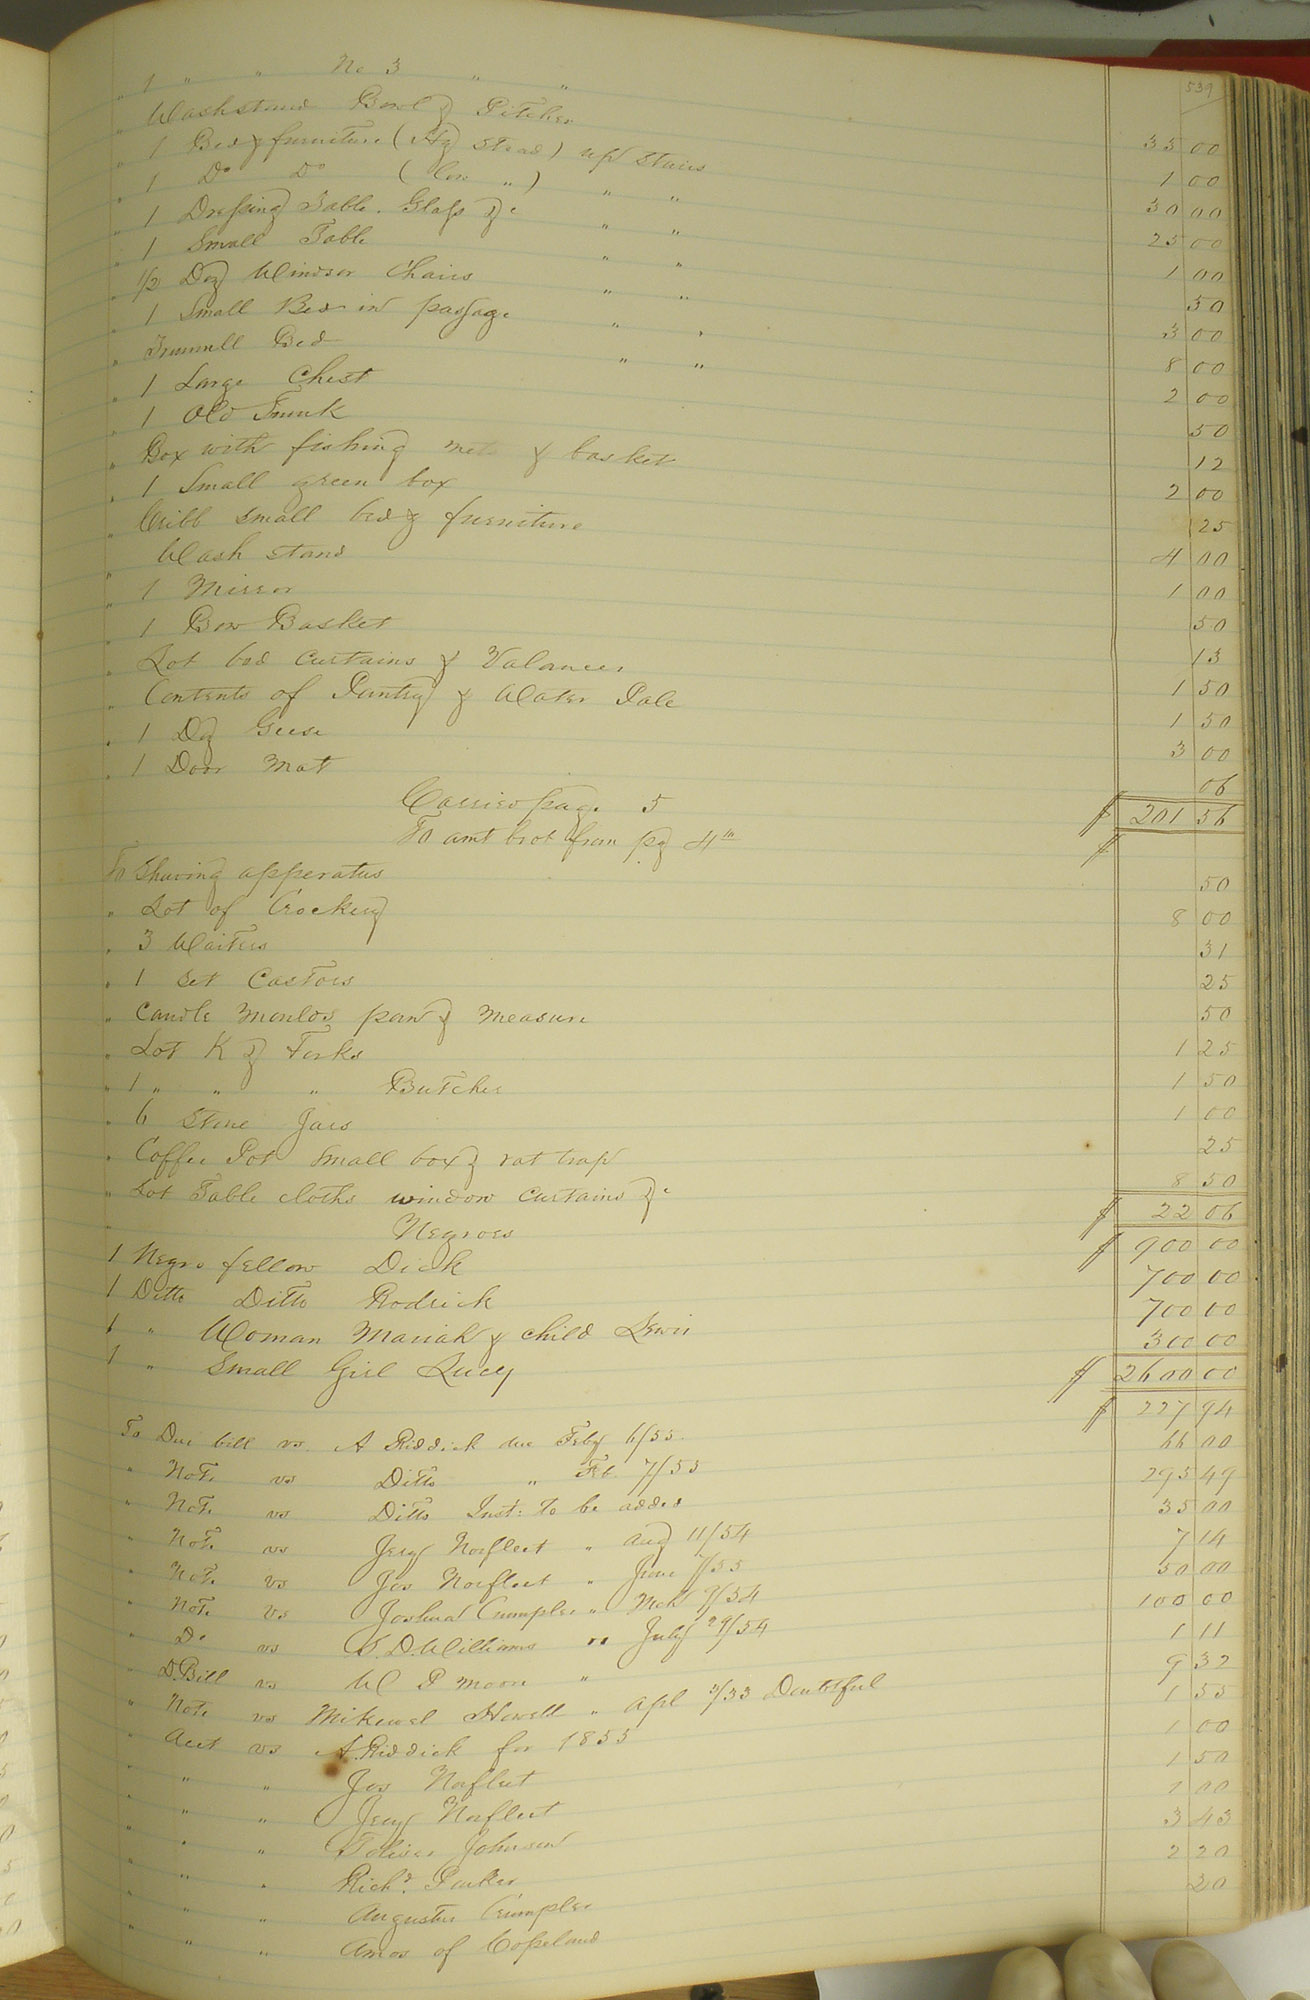 539
" 1 " " No 3 " " 35 00
" Washstand Bowl & Pitcher 1 00
" 1 Bed & furniture (Hg Stead) up Stairs 30 00
" 1 Do Do (low ") " " 25 00
" 1 Dressing Table. Glass &c " " 1 00
" 1 Small Table " " 50
" 1/2 Doz Windsor Chairs " " 3 00
" 1 Small Bed in passage " " 8 00
" Trunnell Bed " " 2 00
" 1 Large Chest 50
" 1 Old Trunk 12
" Box with fishing nets & basket 2 00
" 1 Small green box 25
" Cribb small bed & furniture 4 00
" Wash stand 1 00
" 1 Mirror 50
" 1 Bow Basket 13
" Lot bed curtains & Valances 1 50
" Contents of Pantry & Water Pale 1 50
" 1 Doz Geese 3 00
" 1 Door Mat 06
Carried page 5 $ 201 56
To amt brot from pg 4th $
To Shaving apperatus 50
" Lot of Crockery 8 00
" 3 Waiters 31
" 1 Set Castors 25
" Candle Moulds pan & measure 50
" Lot K & Forks 1 25
" 1 " " " Butcher 1 50
" 6 Stone Jars 1 00
" Coffee Pot Small box & rat trap 25
" Lot Table cloths window curtains &c 8 50
" Negroes $ 22 06
1 Negro fellow Dick $ 900 00
1 Ditto Ditto Rodrick 700 00
1 " Woman Mariah & child Lewis 700 00
1 " Small Girl Lucy 300 00
$ 2600 00
To Due bill vs. A Riddick due Feby 6/55 $ 227 94
" Note vs Ditto " Feb 7/55 66 00
" Note vs Ditto Inst: to be added 295 49
" Note vs Jery Norfleet " Aug 11/54 35 00
" Note vs Jos Norfleet " June 7/55 7 14
" Note vs Joshua Crumpler " Mch 9/54 50 00
" Do vs S. D. Williams " July 29/54 100 00
" D. Bill vs W P Moore " 1 11
" Note vs Mikewel Howell " Apl 3/53 Doubtful 9 32
" Acct vs A. Riddick for 1855 1 55
" " " Jos Norfleet 1 00
" " " Jery Norfleet 1 50
" " " Toliver Johnson 1 00
" " " Richd. Parker 3 43
" " " Augustus Crumpler 2 20
" " " Amos of Copeland 20